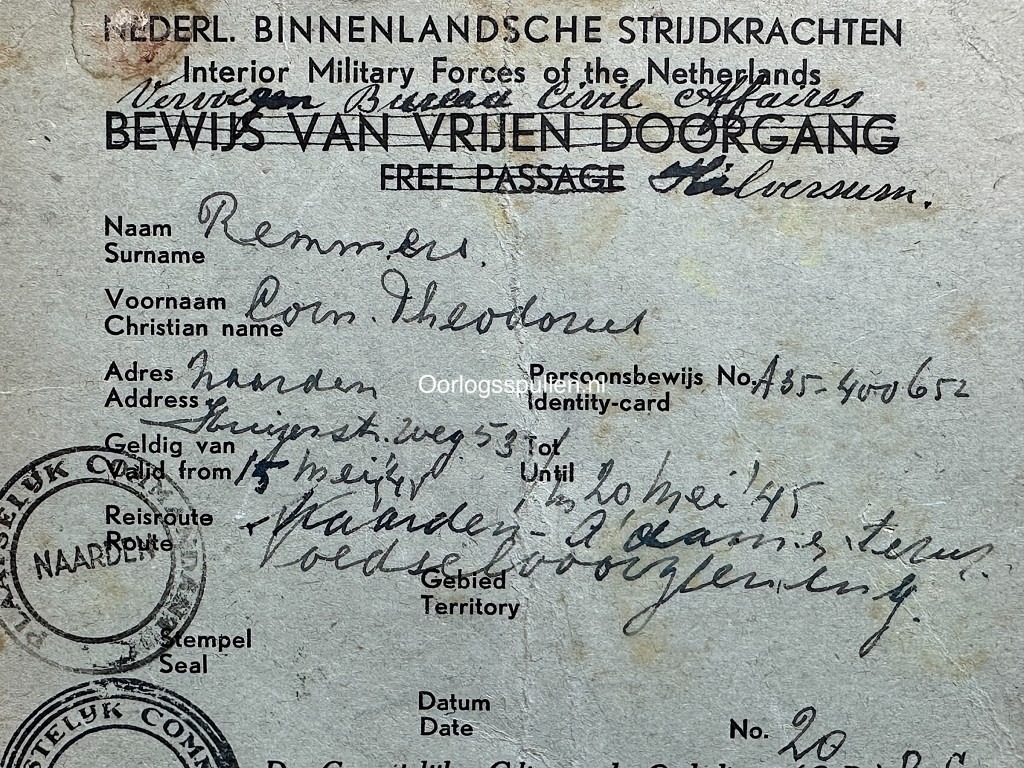 NEDERL. BINNENLANDSCHE STRIJDKRACHTEN
Interior Military Forces of the Netherlands
Vervoegen Bureau Civil Affaires
BEWIJS VAN VRIJEN DOORGANG
FREE PASSAGE Hilversum.
Naam Remmers.
Surname
Voornaam Corn. Theodorus
Christian name
Adres Naarden
Address
Oorlogsspullen.nl
Persoonsbewijs No. A35-400652
Identity-card
str. weg 53
Geldig van
Valid from 15 Mei '45
Tot
Until t/m 20 Mei '45
Reisroute Naarden - A'dam
Route
Voedselvoorziening.
Gebied
Territory
PLAATSELIJK COMMANDANT
NAARDEN
Stempel
Seal
Datum
Date
No. 20